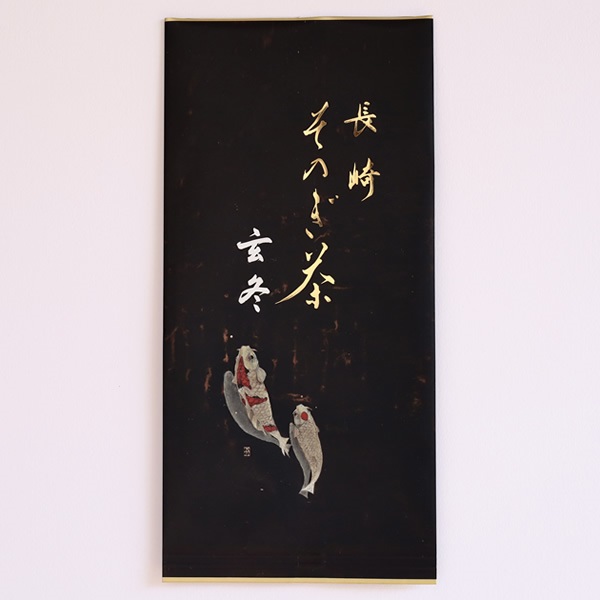 長崎
そのぎ茶
玄冬